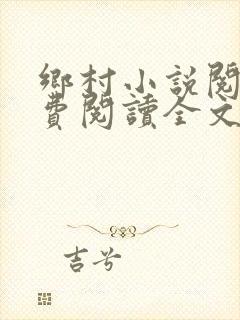 鄉村小說閱
費閱讀全文
吉兮